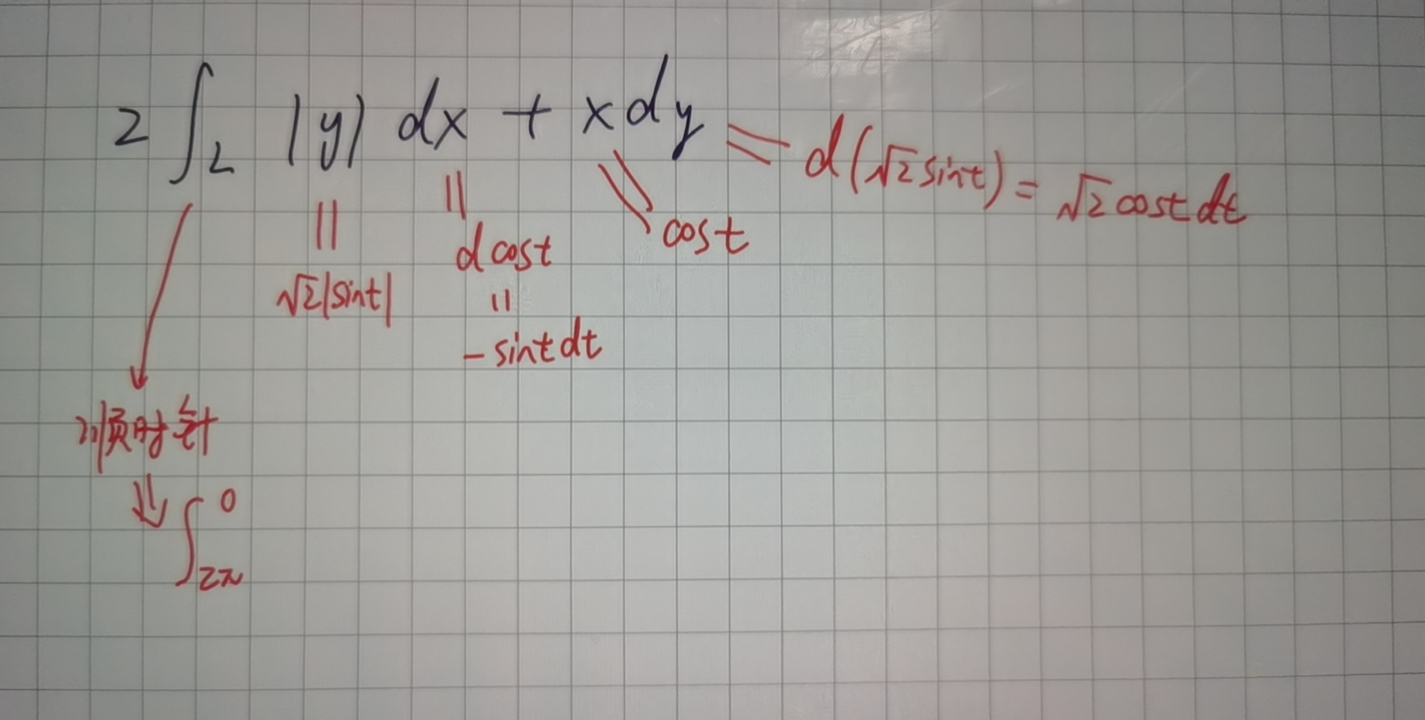 2∫_L |y| dx + x dy = d(√2 sint) = √2 cost dt
|| || \\ cost
√2|sint| d cost
||
- sint dt
顺时针
⇓ ∫_{2π}^{0}